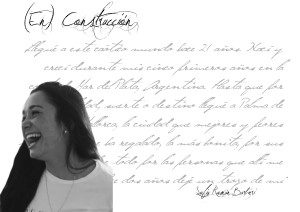 (En) Construcción
Llegué a este cálido mundo hace 21 años. Nací y
crecí durante mis cinco primeros años en la
ciudad Mar del Plata, Argentina. Hasta que por
suerte o destino llegué a Palma de
la ciudad que mejores y peores
ha regalado, la más bonita, por sus
todo por las personas que allí me
dos años dejé un trozo de mí